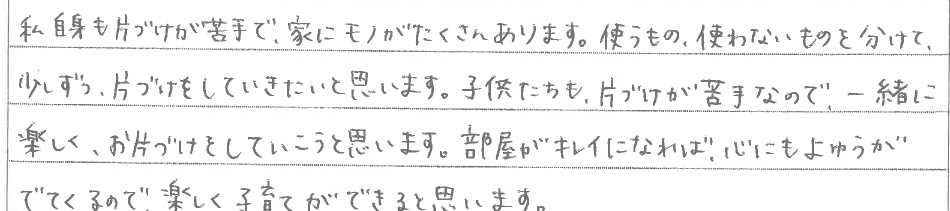 私自身も片づけが苦手で、家にモノがたくさんあります。使うもの、使わないものを分けて、
少しずつ、片づけをしていきたいと思います。子供たちも、片づけが苦手なので、一緒に
楽しく、お片づけをしていこうと思います。部屋がキレイになれば、心にもよゆうが
でてくるので、楽しく子育てができると思います。